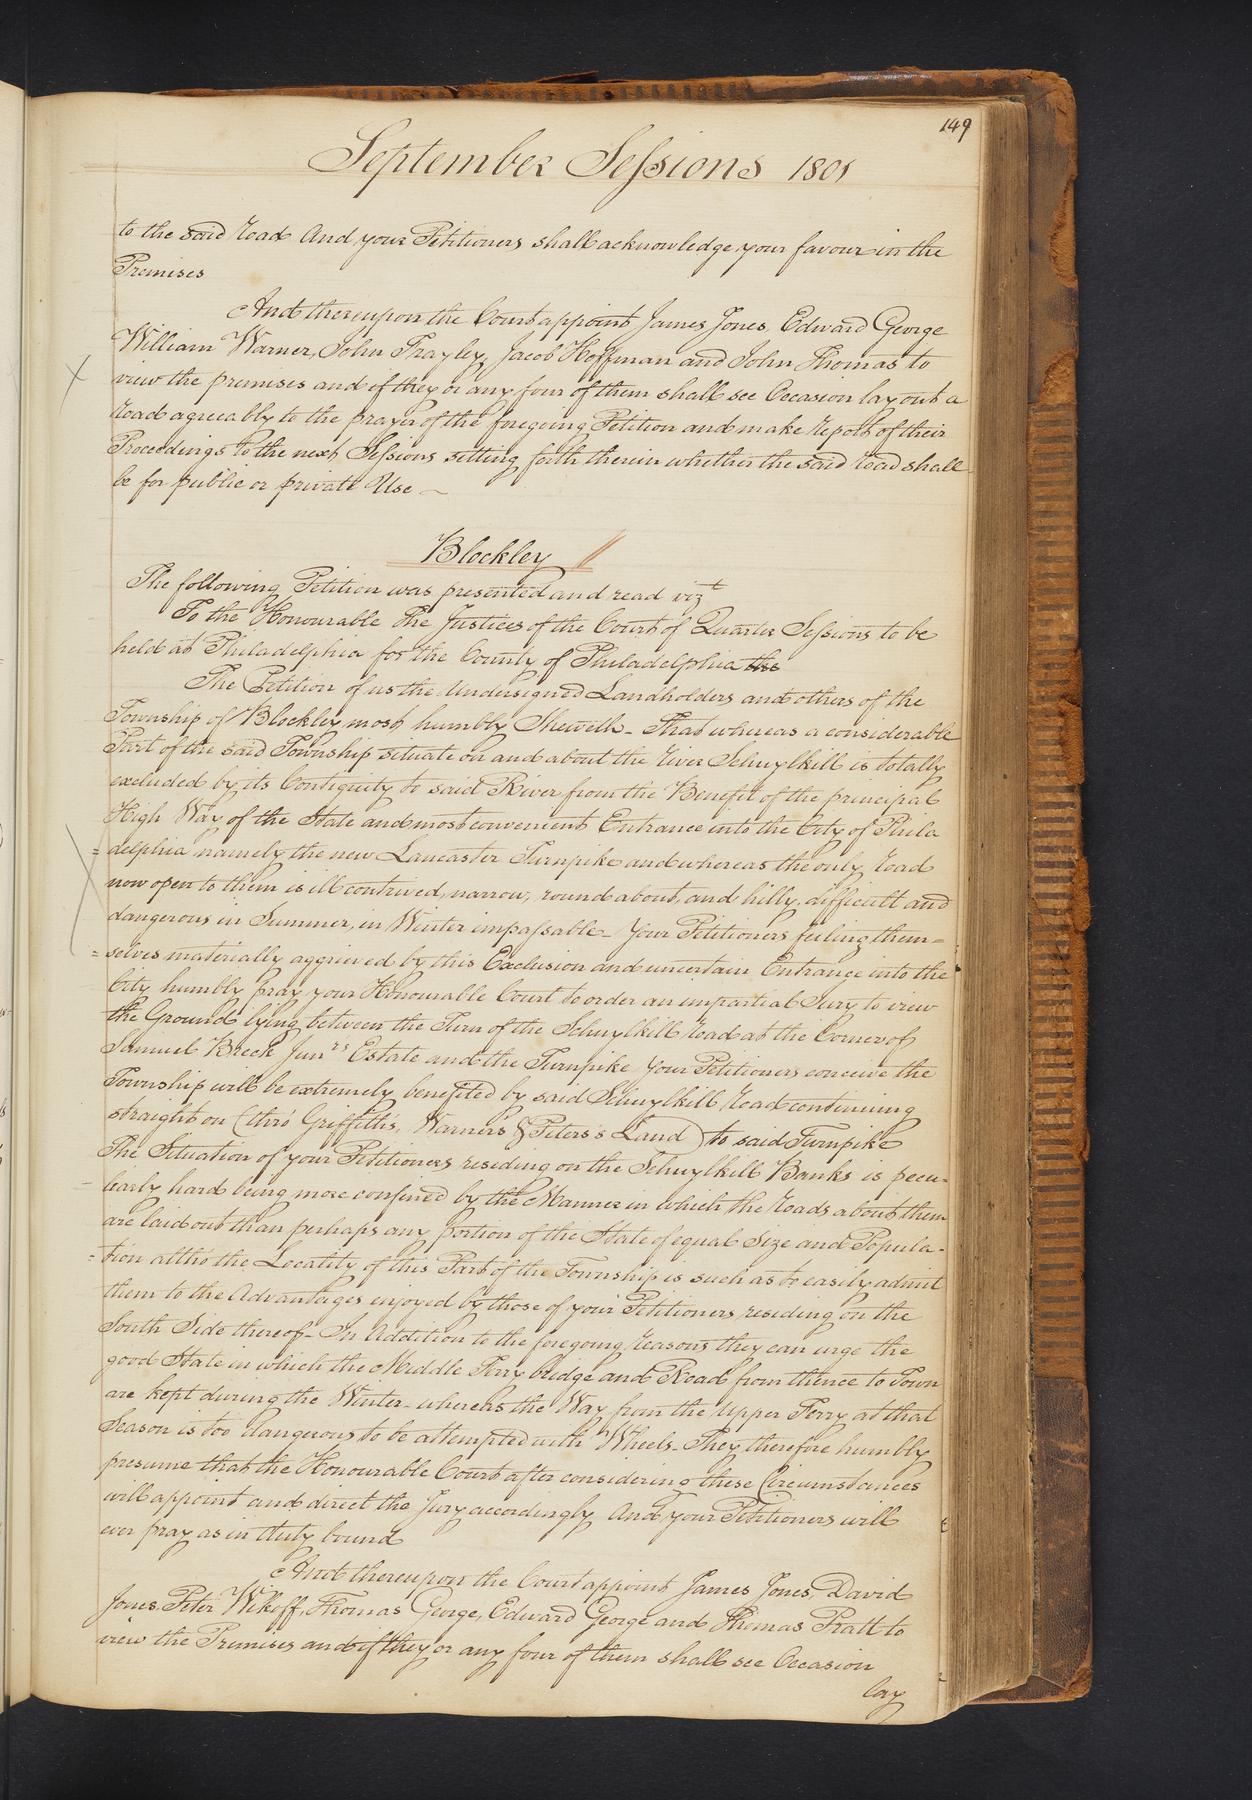 149
September Sessions 1801
to the said Road And your Petitioners shall acknowledge your favour in the
Premises
And thereupon the Court appoint James Jones, Edward George
William Warner, John Frayley, Jacob Hoffman and John Thomas to
view the premises and if they or any four of them shall see Occasion lay out a
Road agreeably to the prayer of the foregoing Petition and make report of their
Proceedings to the next Sessions setting forth therein whether the said road shall
be for public or private Use
Blockley
The following Petition was presented and read vizt
To the Honourable The Justices of the Court of Quarter Sessions to be
held at Philadelphia for the County of Philadelphia the
The Petition of us the Undersigned Landholders and others of the
Township of Blockley most humbly Sheweth - That whereas a considerable
Part of the said Township situate on and about the River Schuylkill is totally
excluded by its Contiguity to said River from the Benefit of the principal
High Way of the State and most convenient Entrance into the City of Phila
= delphia namely the new Lancaster Turnpike and whereas the only road
now open to them is ill contrived, narrow, round about, and hilly, difficult and
dangerous in Summer, in Winter impassable - Your Petitioners feeling them=
= selves materially aggrieved by this Exclusion and uncertain Entrance into the
City humbly pray your Honourable Court to order an impartial Jury to view
the Ground lying between the Turn of the Schuylkill road at the Corner of
Samuel Breck Junrs Estate and the Turnpike Your Petitioners conceive the
Township will be extremely benefited by said Schuylkill road continuing
straight on (thro' Griffith's, Warner's & Peters's Land) to said Turnpike
The Situation of your Petitioners residing on the Schuylkill Banks is pecu-
- liarly hard being more confined by the Manner in which the roads about them
are laid out than perhaps any portion of the State of equal Size and Popula-
= tion altho' the Locality of this Part of the Township is such as to easily admit
them to the Advantages enjoyed by those of your Petitioners residing on the
South Side thereof - In Addition to the foregoing reasons they can urge the
good State in which the Middle Ferry bridge and Road from thence to Town
are kept during the Winter - whereas the Way from the Upper Ferry at that
Season is too dangerous to be attempted with Wheels - They therefore humbly
presume that the Honourable Court after considering these Circumstances
will appoint and direct the Jury accordingly And your Petitioners will
ever pray as in duty bound
And thereupon the Court appoint James Jones, David
Jones, Peter Wikoff, Thomas George, Edward George and Thomas Pratt to
view the Premises and if they or any four of them shall see Occasion
lay